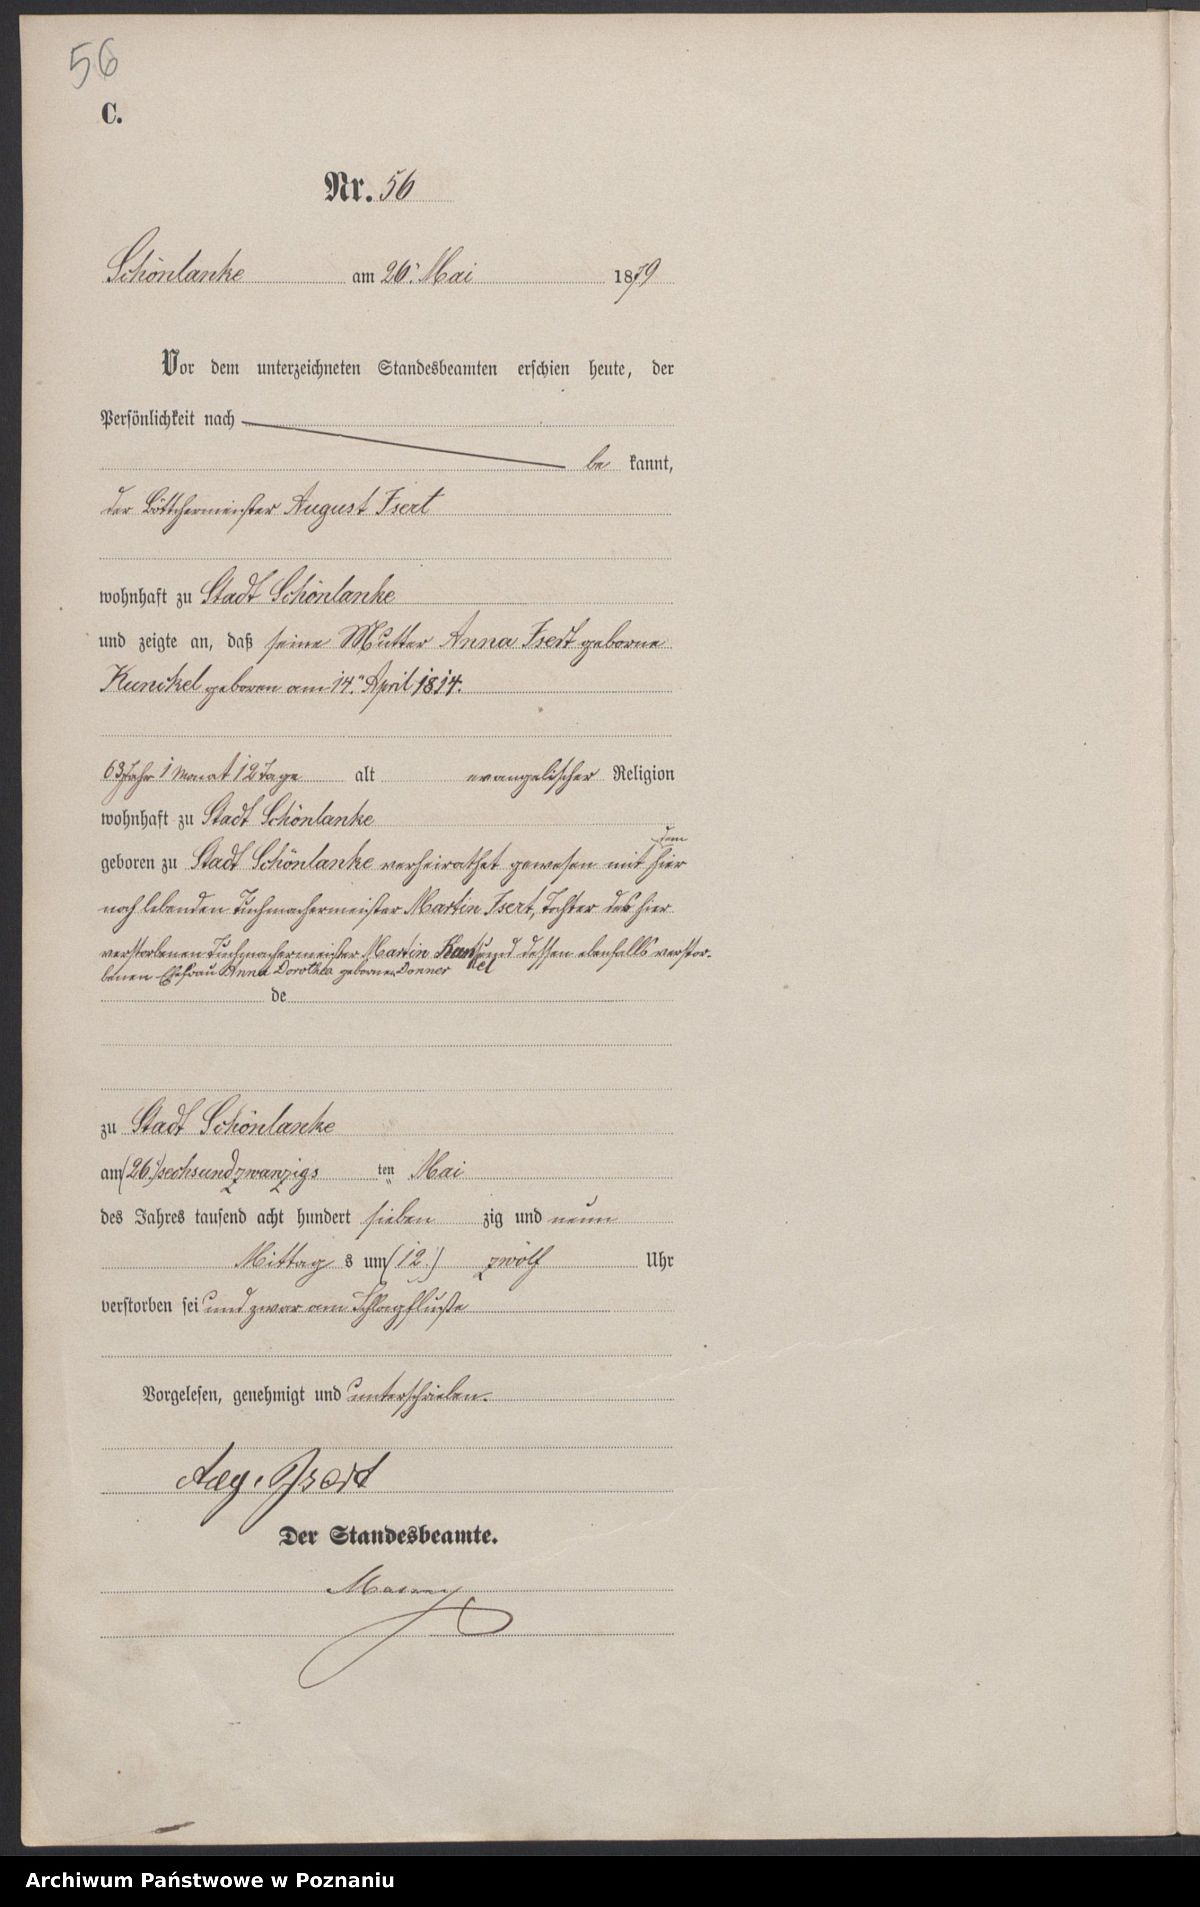 56
C.
Nr. 56
Schönlanke am 26. Mai 1879
Vor dem unterzeichneten Standesbeamten erschien heute, der
Persönlichkeit nach
be kannt,
der Böttchermeister August Isert
wohnhaft zu Stadt Schönlanke
und zeigte an, daß seine Mutter Anna Isert geborne
Kunckel geboren am 14. April 1814.
63 Jahr 1 Monat 12 Tage alt evangelischer Religion
wohnhaft zu Stadt Schönlanke
geboren zu Stadt Schönlanke verheirathet gewesen mit dem hier
noch lebenden Tuchmachermeister Martin Isert, Tochter des hier
verstorbenen Tuchmachermeister Martin Kunckel und dessen ebenfalls verstor-
benen Ehefrau Anna Dorothea geborne Donner
de
zu Stadt Schönlanke
am (26.) sechsundzwanzigs ten Mai
des Jahres tausend acht hundert sieben zig und neun
Mittag s um (12.) zwölf Uhr
verstorben sei und zwar am Schlagflusse
Vorgelesen, genehmigt und unterschrieben.
Aug. Isert
Der Standesbeamte.
Archiwum Państwowe w Poznaniu